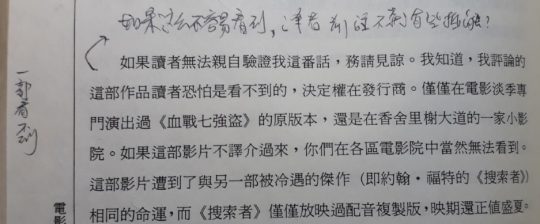 如果這么不容易看到,
如果讀者無法親自驗證我這番話，務請見諒。我知道，我評論的
這部作品讀者恐怕是看不到的，決定權在發行商。僅僅在電影淡季專
門演出過《血戰七強盜》的原版本，還是在香舍里榭大道的一家小影
院。如果這部影片不譯介過來，你們在各區電影院中當然無法看到。
這部影片遭到了與另一部被冷遇的傑作（即約翰・福特的《搜索者》）
相同的命運，而《搜索者》僅僅放映過配音複製版，映期還正值盛夏。
一部看到
電影